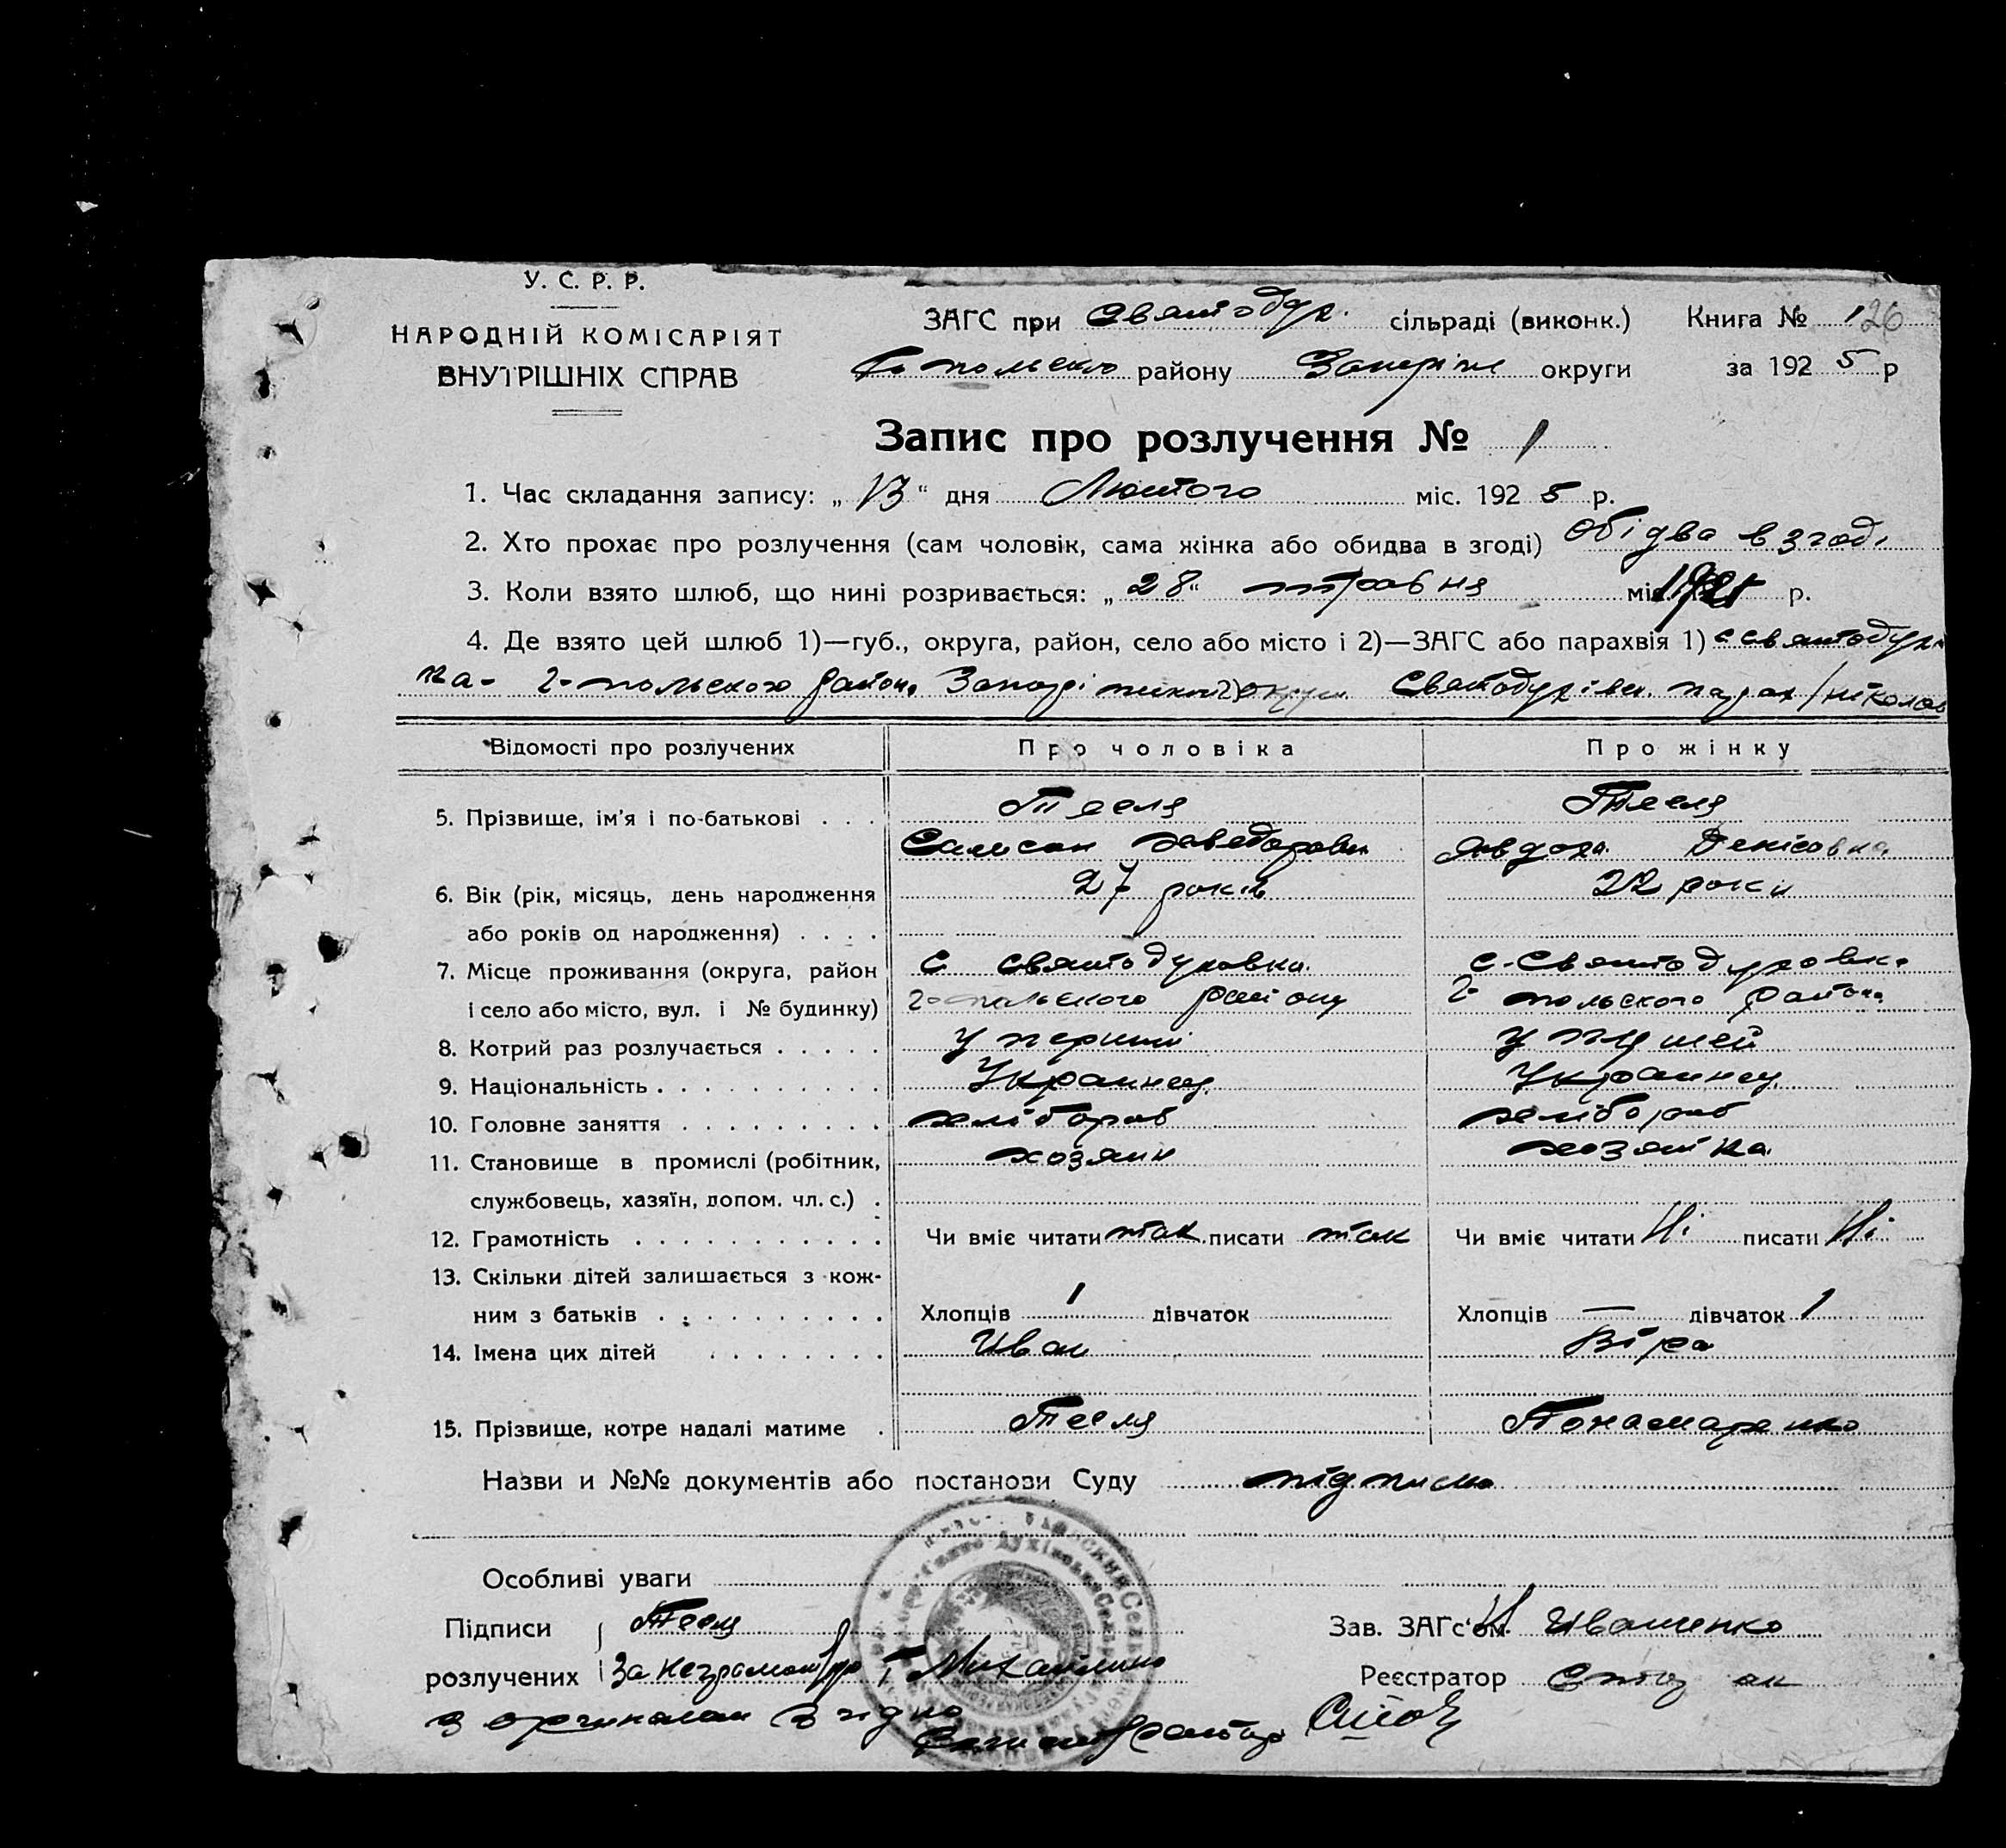 У. С. Р. Р.
НАРОДНІЙ КОМІСАРІЯТ
ВНУТРІШНІХ СПРАВ
ЗАГС при Святодух. сільраді (виконк.) Книга № 1 26
польського району Запоріж округи за 1925 р
Запис про розлучення № 1
1. Час складання запису: „13“ дня Лютого міс. 1925 р.
2. Хто прохає про розлучення (сам чоловік, сама жінка або обидва в згоді) Обідва в згоді
3. Коли взято шлюб, що нині розривається: „28“ травня міс. р.
4. Де взято цей шлюб 1)—губ., округа, район, село або місто і 2)—ЗАГС або парахвія 1) с Святодухо
вка- Г-польского району Запорізької 2) округи Святодухівск. парах /Ніколов
Відомості про розлучених Про чоловіка Про жінку
5. Прізвище, ім'я і по-батькові . . . Тесля Тесля
Самсон Хведорович Явдоха Денісовна
6. Вік (рік, місяць, день народження 27 років 22 роки
або років од народження) . . . .
7. Місце проживання (округа, район С Святодуховка с. Святодуховка
і село або місто, вул. і № будинку) Г-польского району Г-польского району
8. Котрий раз розлучається . . . . . У перший У перший
9. Національність . . . . . . . . . . Украинец Украинец
10. Головне заняття . . . . . . . . . хлібороб хлібороб
11. Становище в промислі (робітник, хозяин хозяйка
службовець, хазяїн, допом. чл. с.) .
12. Грамотність . . . . . . . . . . . Чи вміє читати так писати так Чи вміє читати Ні писати Ні
13. Скільки дітей залишається з кож-
ним з батьків . . . . . . . . . . Хлопців 1 дівчаток Хлопців — дівчаток 1
14. Імена цих дітей . . . . . . . . Иван Віра
15. Прізвище, котре надалі матиме . Тесля Понамаренко
Назви и №№ документів або постанови Суду підписка
Особливі уваги
Підписи Тесля Зав. ЗАГс'ом Ивашенко
розлучених За неграмотну Михайлин Реєстратор
З орігиналом Згідно